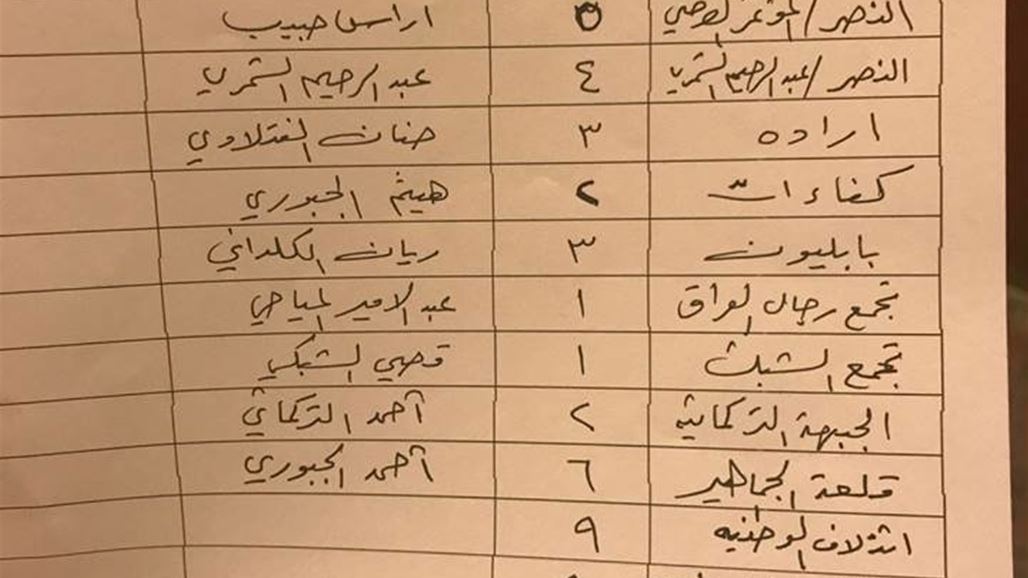 النصر / المؤتمر الوطني ٥ اراس حبيب
النصر / عبد الرحيم الشمري ٤ عبد الرحيم الشمري
اراده ٣ حنان الفتلاوي
كفاءات ٢ هيثم الجبوري
بابليون ٣ ريان الكلداني
تجمع رجال العراق ١ عبد الامير المياحي
تجمع الشبك ١ قصي الشبكي
الجبهة التركمانيه ٢ أحمد التركماني
قلعة الجماهير ٦ أحمد الجبوري
ائتلاف الوطنيه ٩